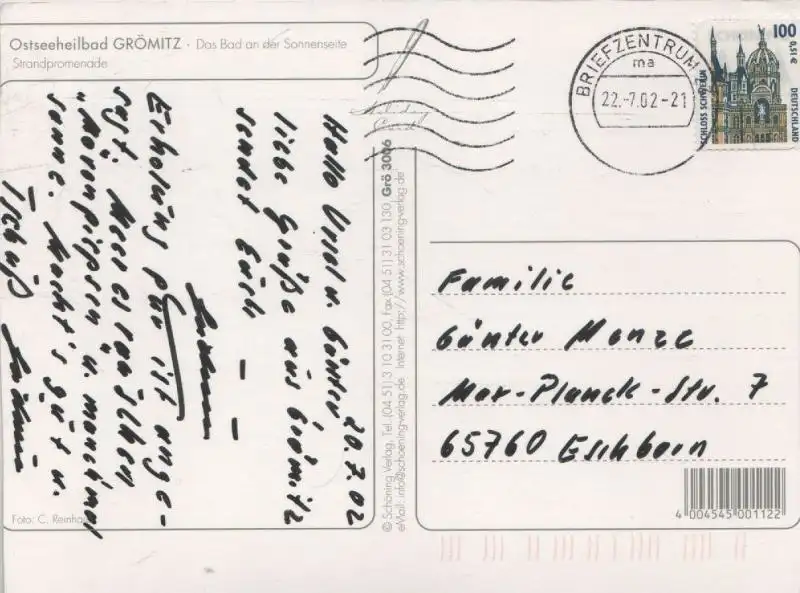 Ostseeheilbad GRÖMITZ · Das Bad an der Sonnenseite
Strandpromenade
Hallo Ursel u. Günter 20.7.02
liebe Grüße aus Grömitz
sendet Euch
Erholung pur ist ange-
sagt. Meeresrauschen
"Mövenpiepsen u. manchmal
Sonne. Macht's gut u.
Tschüß
Foto: C. Reinha
© Schöning Verlag, Tel. (04 51) 3 10 31 00, Fax (04 51) 31 03 130, Grö 3006
eMail: info@schoening-verlag.de Internet: http://www.schoening-verlag.de
BRIEFZENTRUM
ma
22.-7.02-21
100
0,51€
DEUTSCHLAND
SCHLOSS SCHWERIN
Familie
Günter Menze
Max-Planck-Str. 7
65760 Eschborn
4 004545 001122